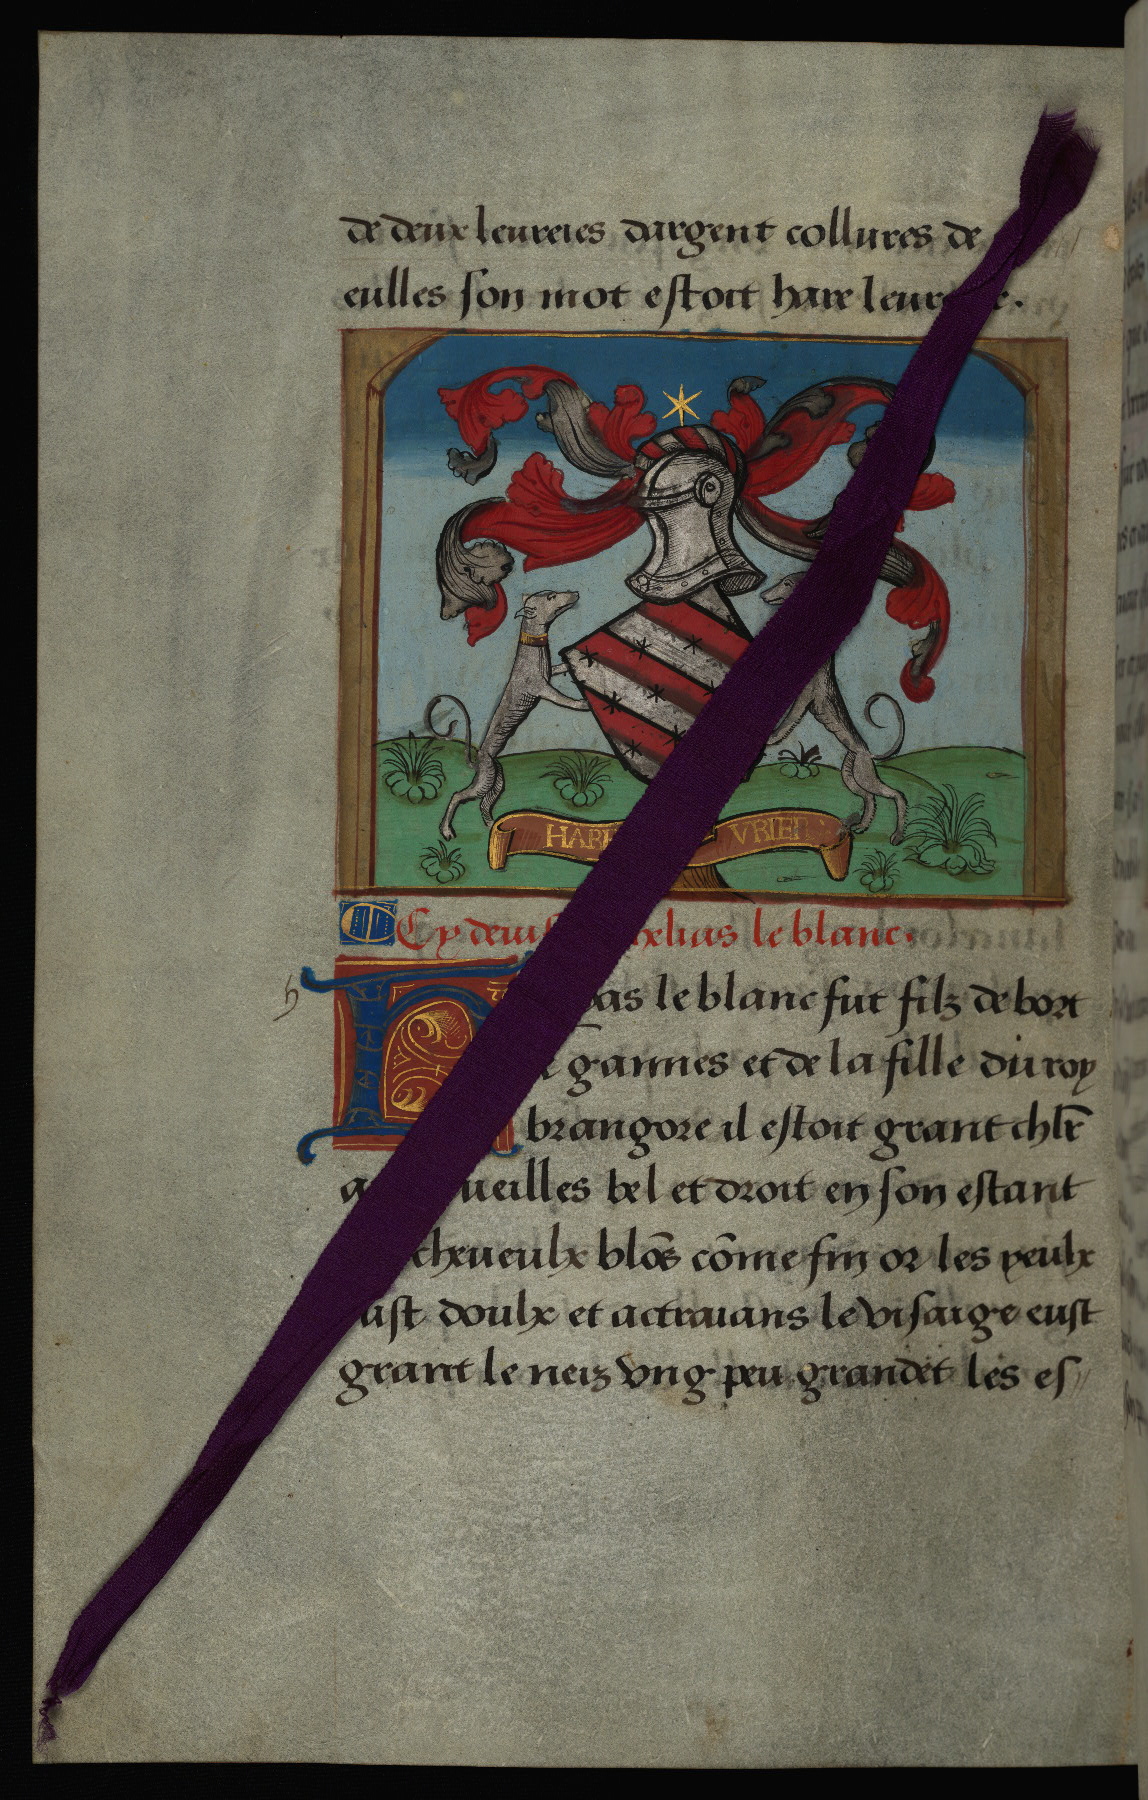 de deux leureres dargent collures de
eulles son mot estoit hare
HARE VRIER
Cy deuis helius le blanc.
h
le blanc fut filz de bort
gannes et de la fille du roy
brangore il estoit grant chlr̄
ueilles bel et droit en son estant
cheueulx blōs cōme fin or les yeulx
doulx et actraians le visaige eust
grant le neiz vng peu grandet les es